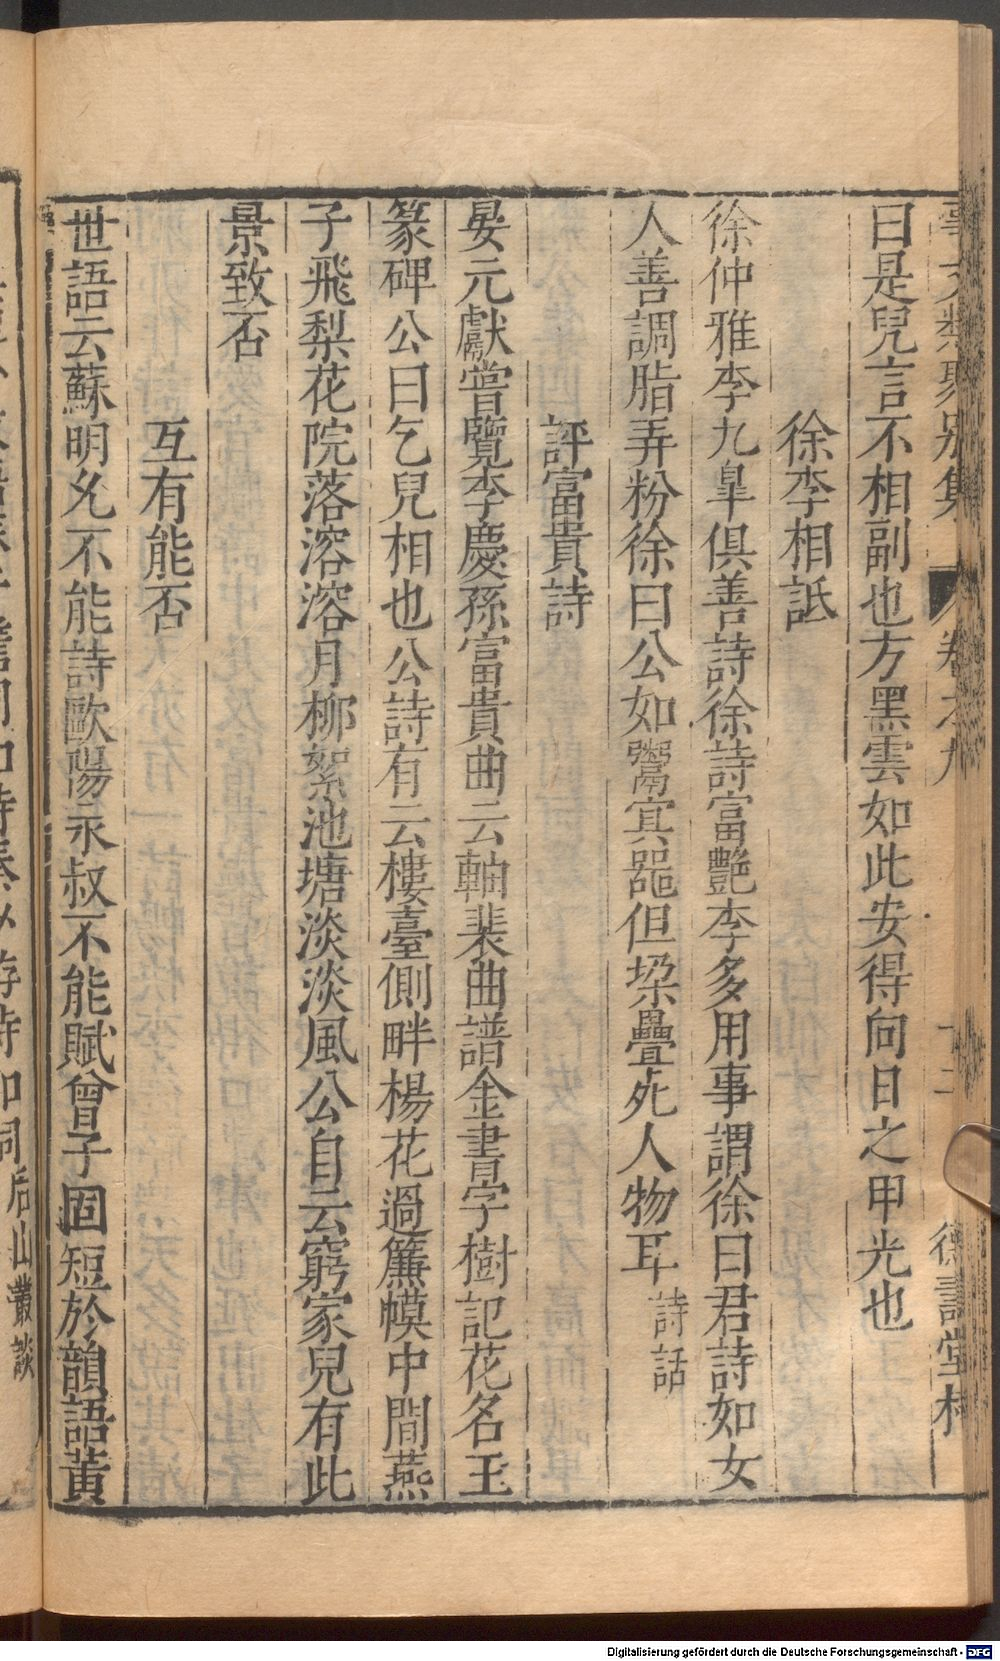 事文類聚別集 卷之九 十二 德壽堂梓
曰是兒言不相副也方黑雲如此安得向日之甲光也
徐李相詆
徐仲雅李九皐俱善詩徐詩富艷李多用事謂徐曰君詩如女
人善調脂弄粉徐曰公如鬻冥器但垜疊死人物耳詩話
評富貴詩
晏元獻嘗覽李慶孫富貴曲云軸裝曲譜金書字樹記花名玉
篆碑公曰乞兒相也公詩有云樓臺側畔楊花過簾幙中間燕
子飛梨花院落溶溶月柳絮池塘淡淡風公自云窮家兒有此
景致否
互有能否
世語云蘇明允不能詩歐陽永叔不能賦曾子固短於韻語黃
后山叢談
Digitalisierung gefördert durch die Deutsche Forschungsgemeinschaft - DFG